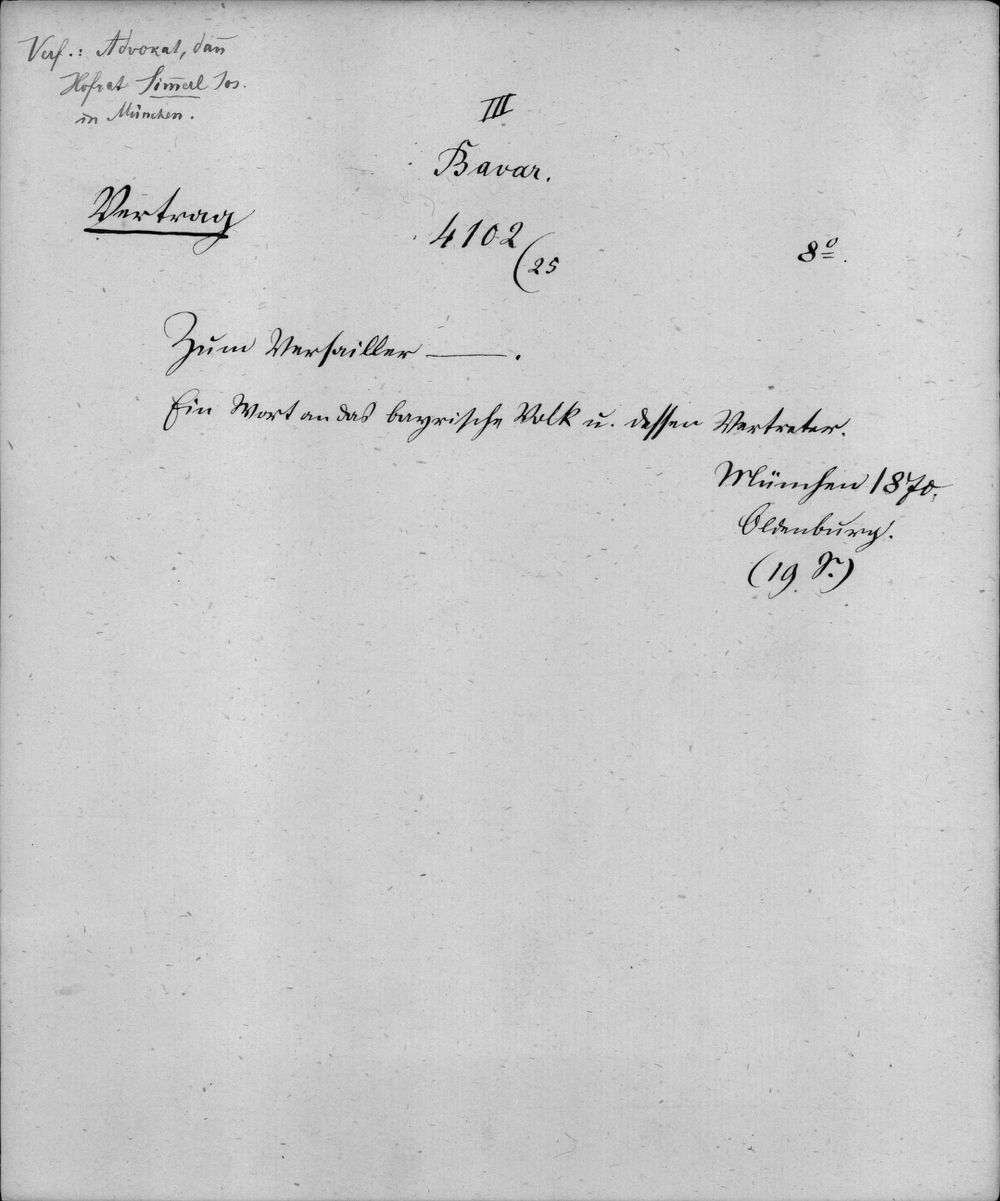 Verf.: Advokat, dan̄
Hofrat Sim̄erl Jos.
in München.
III
Bavar.
Vertrag
4102
(25
8º.
Zum Versailler ——.
Ein Wort an das bayrische Volk u. dessen Vertreter.
München 1870.
Oldenburg.
(19 S.)